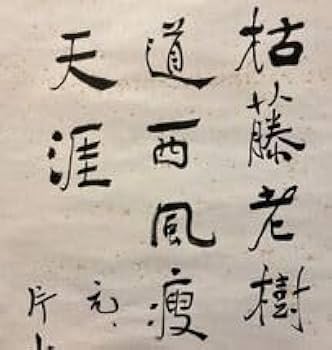 枯藤老樹
道西風瘦
天涯
元
片